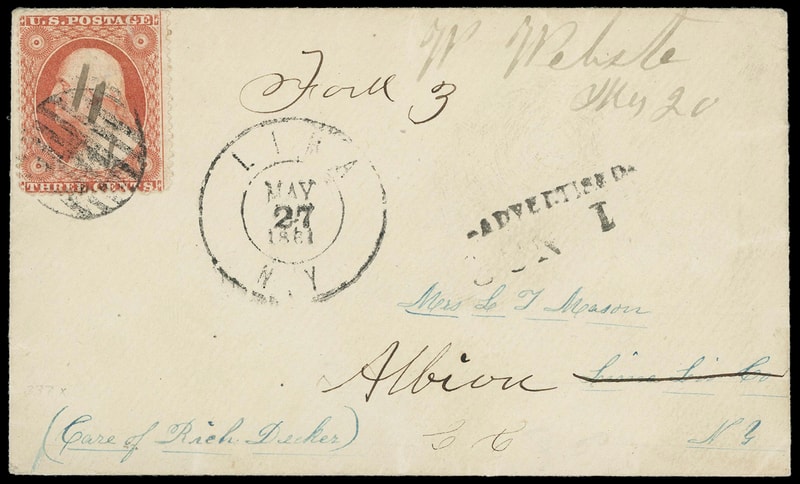 U.S. POSTAGE
THREE CENTS
11
W Webste
May 20
Ford 3
LIMA
MAY
27
1861
N.Y
ADVERTISED
JUN 1
Mrs L T Mason
Albion
Co
(Care of Rich. Decker)
C C
N Y